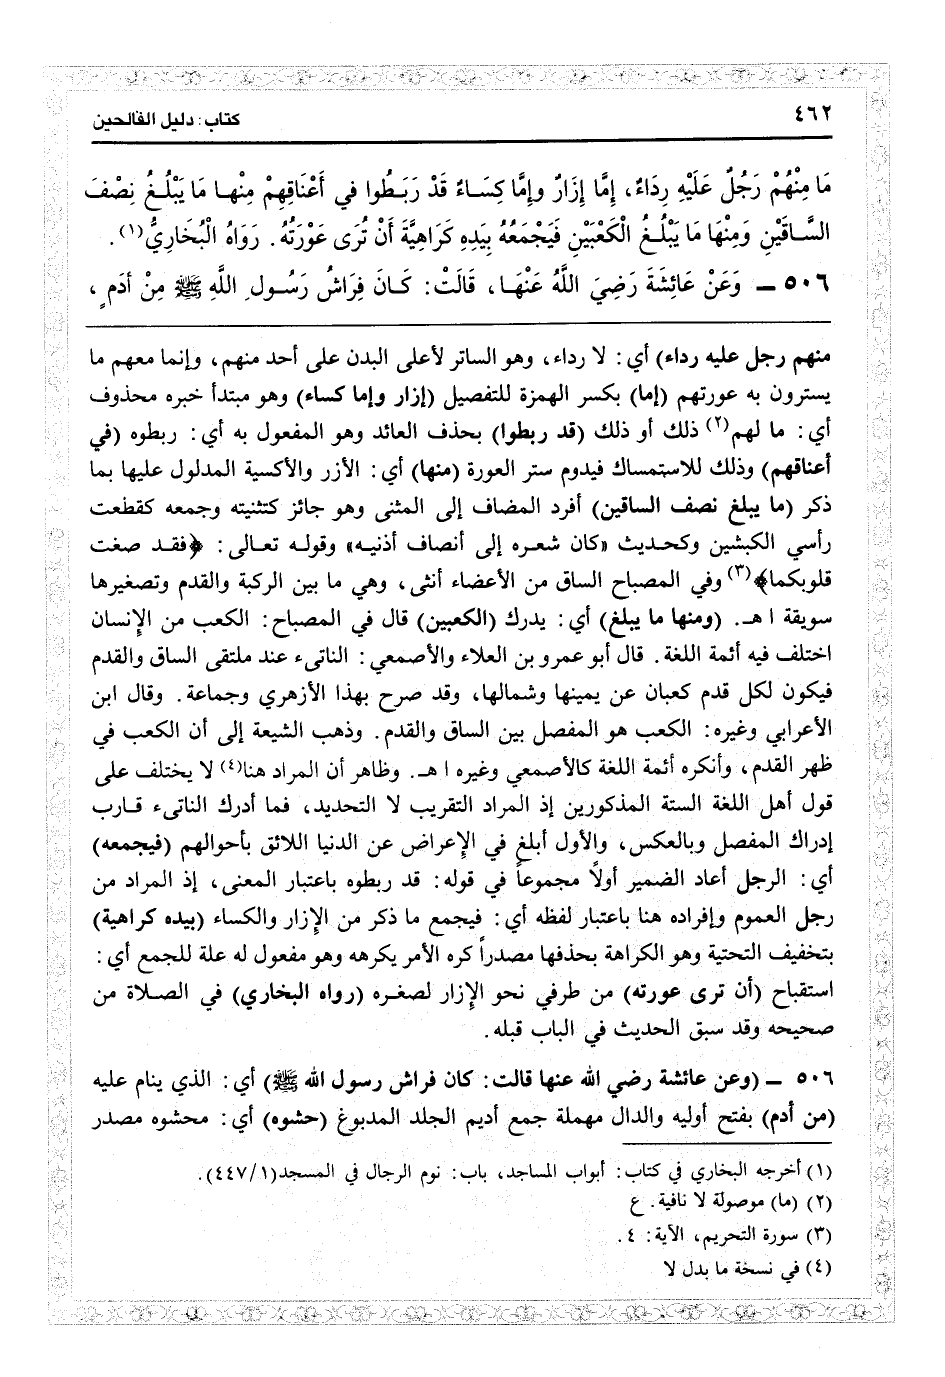 ٤٦٢
كتاب: دليل الفالحين
مَا مِنْهُمْ رَجُلٌ عَلَيْهِ رِدَاءٌ، إِمَّا إِزَارٌ وإِمَّا كِسَاءٌ قَدْ رَبَطُوا في أَعْنَاقِهِمْ مِنْها مَا يَبْلُغُ نِصْفَ
السَّاقَيْنِ وَمِنْهَا مَا يَبْلُغُ الْكَعْبَيْنِ فَيَجْمَعُهُ بِيَدِهِ كَرَاهِيَّةَ أَنْ تُرَى عَوْرَتُهُ. رَوَاهُ الْبُخَارِيُّ(١).
٥٠٦ ـ وَعَنْ عَائِشَةَ رَضِيَ اللَّهُ عَنْهَا، قَالَتْ: كَانَ فِرَاشُ رَسُولِ اللَّهِ ﷺ مِنْ أَدَمٍ،
منهم رجل عليه رداء) أي: لا رداء، وهو الساتر لأعلى البدن على أحد منهم، وإنما معهم ما
يسترون به عورتهم (إما) بكسر الهمزة للتفصيل (إزار وإما كساء) وهو مبتدأ خبره محذوف
أي: ما لهم(٢) ذلك أو ذلك (قد ربطوا) بحذف العائد وهو المفعول به أي: ربطوه (في
أعناقهم) وذلك للاستمساك فيدوم ستر العورة (منها) أي: الأزر والأكسية المدلول عليها بما
ذكر (ما يبلغ نصف الساقين) أفرد المضاف إلى المثنى وهو جائز كتثنيته وجمعه كقطعت
رأسي الكبشين وكحديث «كان شعره إلى أنصاف أذنيه» وقوله تعالى: ﴿فقد صغت
قلوبكما﴾(٣) وفي المصباح الساق من الأعضاء أنثى، وهي ما بين الركبة والقدم وتصغيرها
سويقة ا هـ. (ومنها ما يبلغ) أي: يدرك (الكعبين) قال في المصباح: الكعب من الإِنسان
اختلف فيه أئمة اللغة. قال أبو عمرو بن العلاء والأصمعي: الناتىء عند ملتقى الساق والقدم
فيكون لكل قدم كعبان عن يمينها وشمالها، وقد صرح بهذا الأزهري وجماعة. وقال ابن
الأعرابي وغيره: الكعب هو المفصل بين الساق والقدم. وذهب الشيعة إلى أن الكعب في
ظهر القدم، وأنكره أئمة اللغة كالأصمعي وغيره ا هـ. وظاهر أن المراد هنا(٤) لا يختلف على
قول أهل اللغة الستة المذكورين إذ المراد التقريب لا التحديد، فما أدرك الناتىء قارب
إدراك المفصل وبالعكس، والأول أبلغ في الإِعراض عن الدنيا اللائق بأحوالهم (فيجمعه)
أي: الرجل أعاد الضمير أولاً مجموعاً في قوله: قد ربطوه باعتبار المعنى، إذ المراد من
رجل العموم وإفراده هنا باعتبار لفظه أي: فيجمع ما ذكر من الإِزار والكساء (بيده كراهية)
بتخفيف التحتية وهو الكراهة بحذفها مصدراً كره الأمر يكرهه وهو مفعول له علة للجمع أي:
استقباح (أن ترى عورته) من طرفي نحو الإِزار لصغره (رواه البخاري) في الصلاة من
صحيحه وقد سبق الحديث في الباب قبله.
٥٠٦ ـ (وعن عائشة رضي الله عنها قالت: كان فراش رسول الله ﷺ) أي: الذي ينام عليه
(من أدم) بفتح أوليه والدال مهملة جمع أديم الجلد المدبوغ (حشوه) أي: محشوه مصدر
(١) أخرجه البخاري في كتاب: أبواب المساجد، باب: نوم الرجال في المسجد(٤٤٧/١).
(٢) (ما) موصولة لا نافية. ع
(٣) سورة التحريم، الآية: ٤.
(٤) في نسخة ما بدل لا